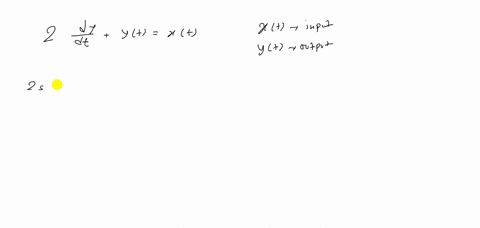 2 dy/dt + y(t) = x(t)
x(t) → input
y(t) → output
2s